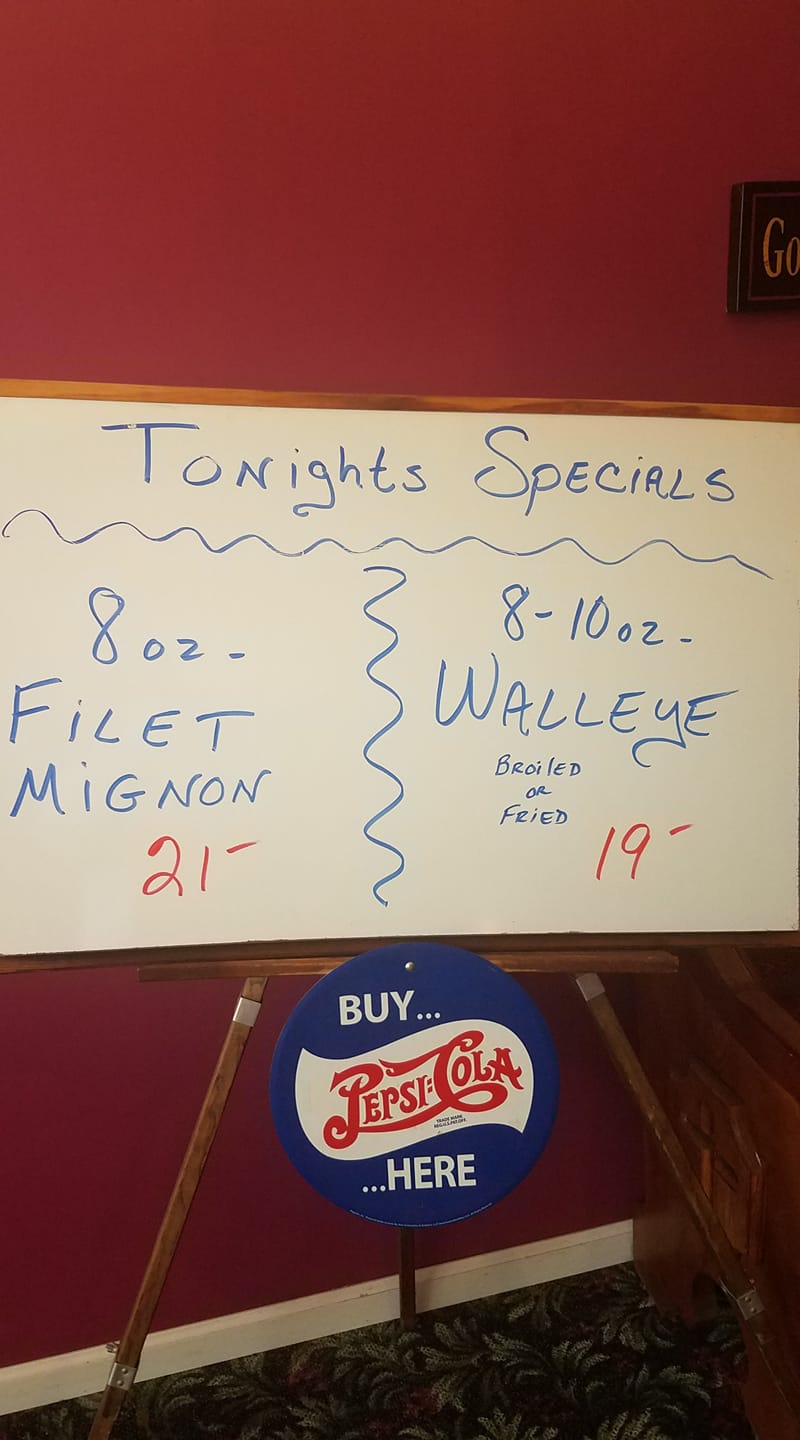 Go
Tonights Specials
8 oz-
Filet
Mignon
21-
8-10 oz-
Walleye
Broiled
or
Fried
19-
BUY...
PEPSI:COLA
TRADE MARK
...HERE